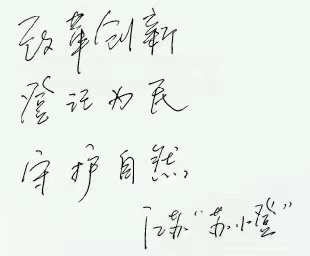 改革创新
登记为民
守护自然
江苏“苏小登”